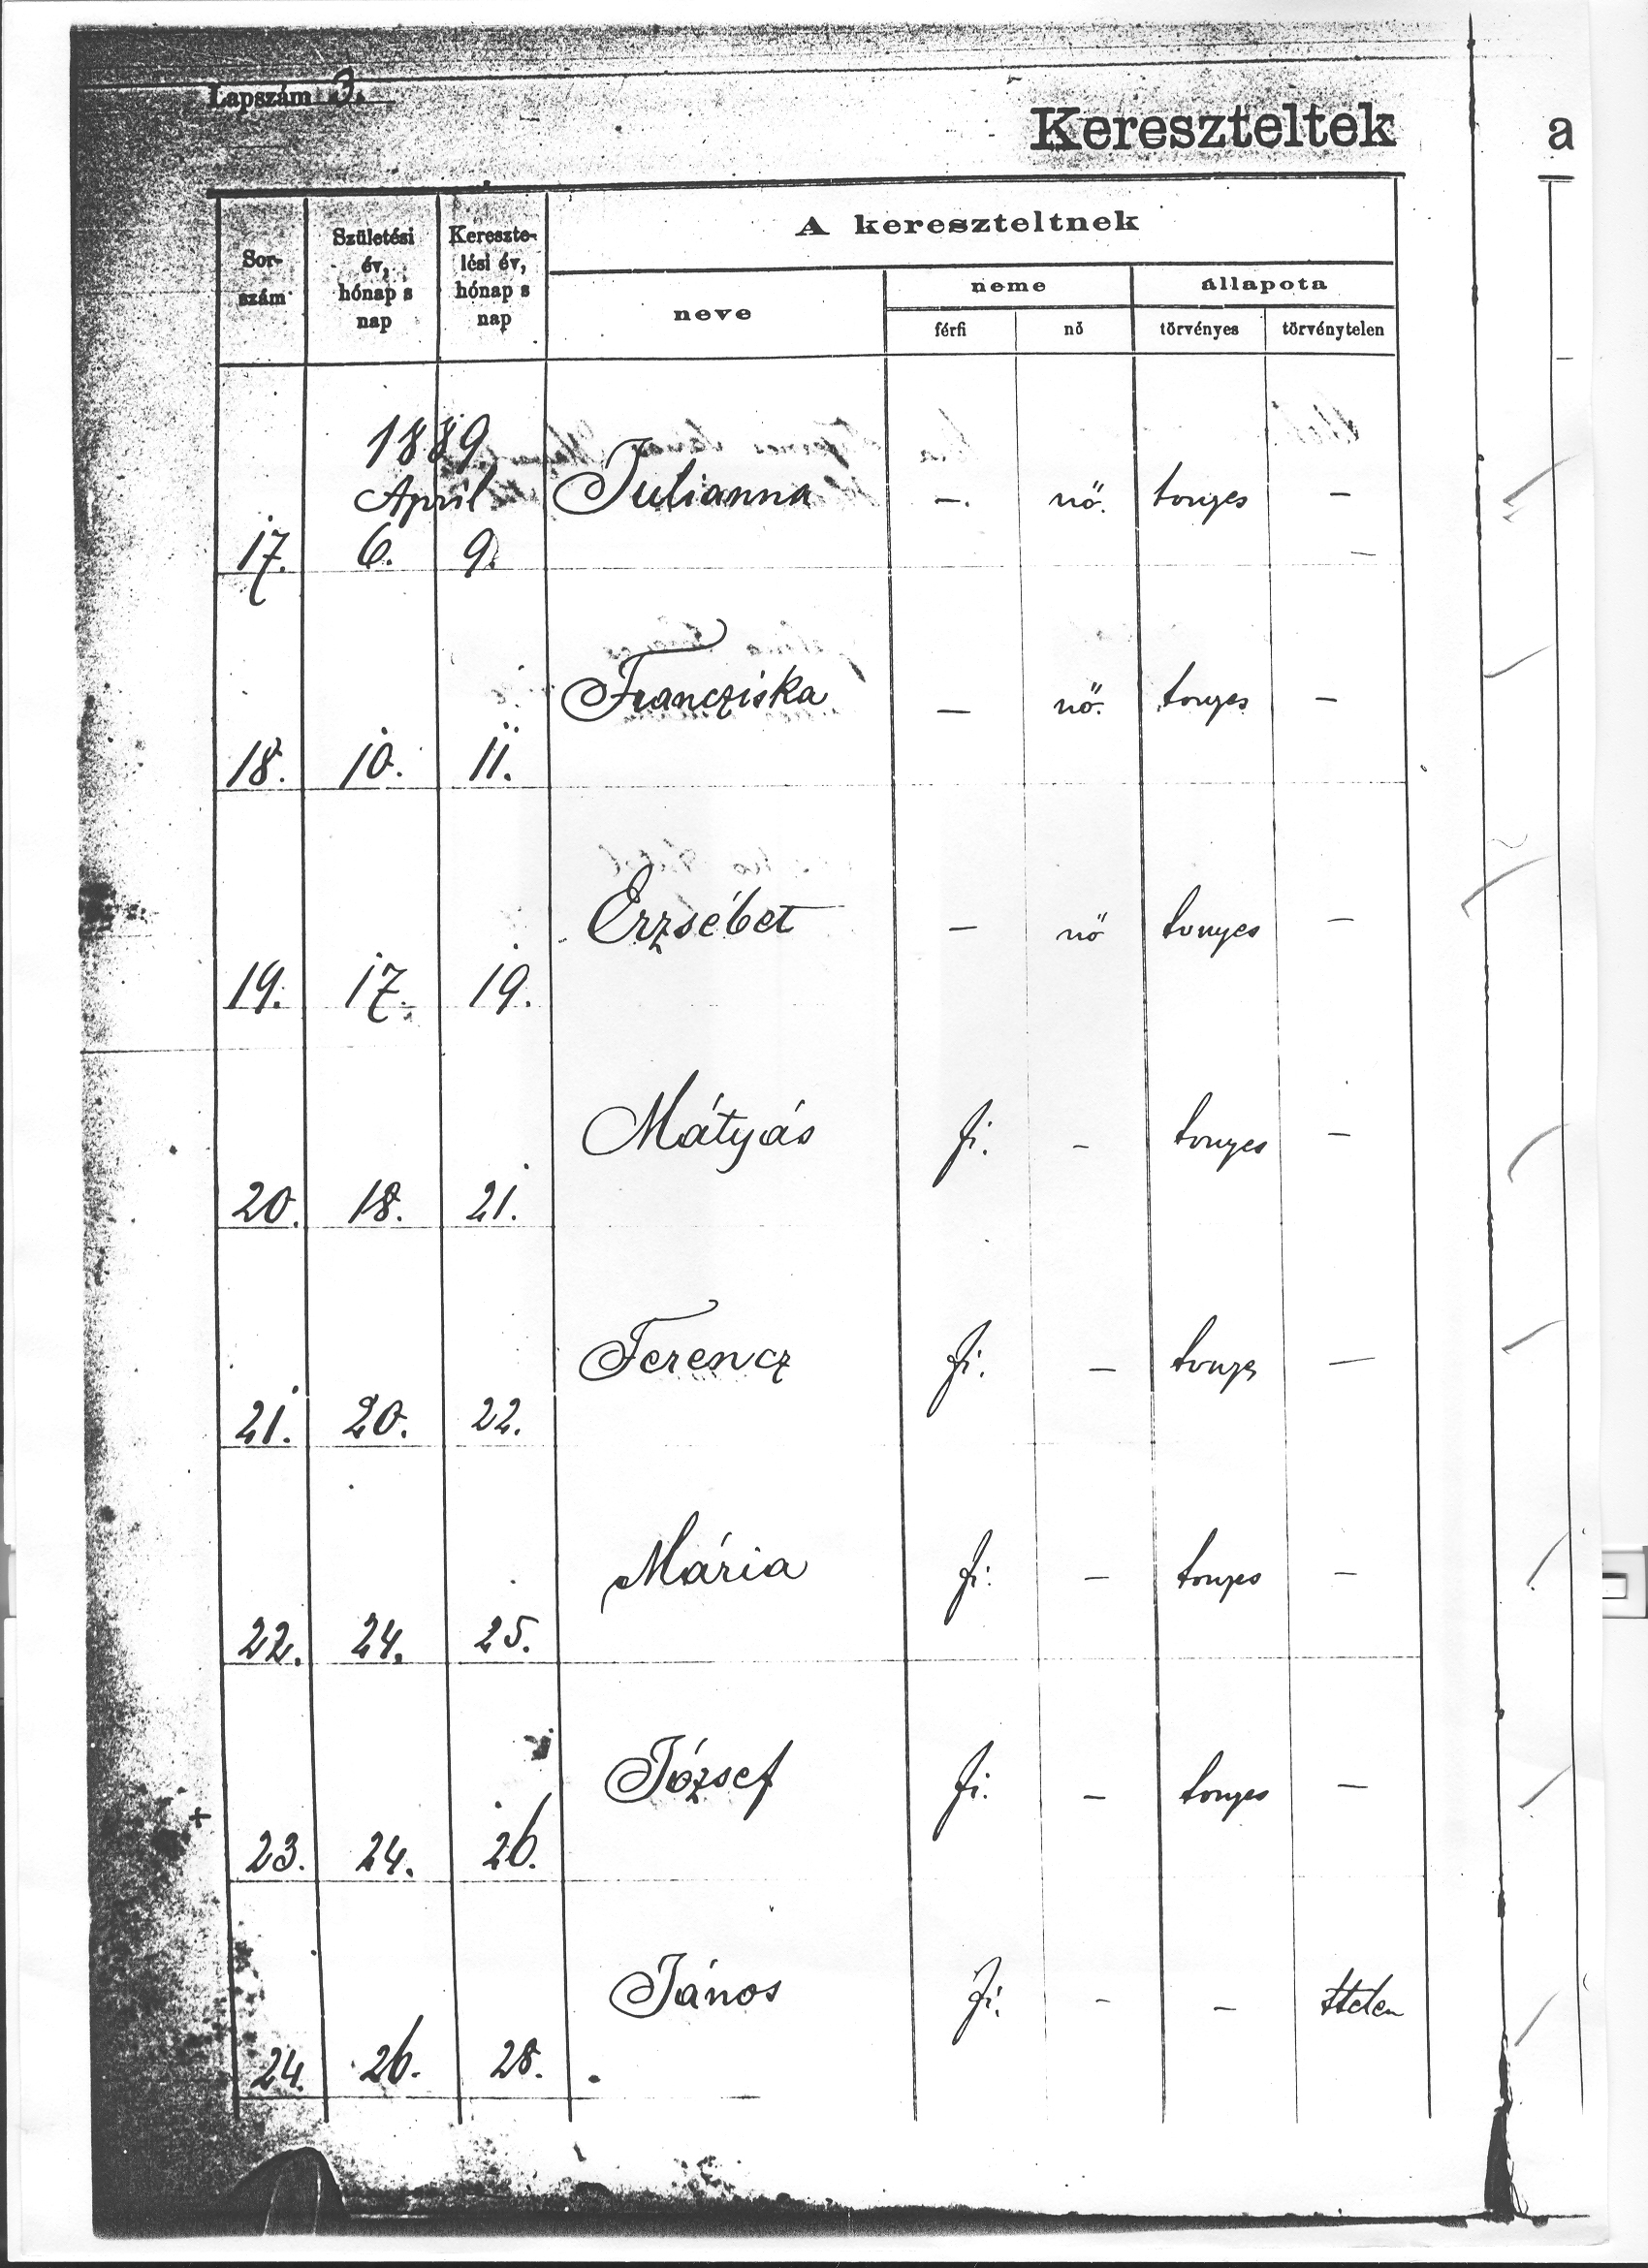 Lapszám 3.
Kereszteltek
a
Sor-
szám
Születési
év,
hónap s
nap
Kereszte-
lési év,
hónap s
nap
A kereszteltnek
neve
neme
állapota
férfi
nő
törvényes
törvénytelen
1889
April
17. 6. 9. Julianna — nő. tvnyes —
18. 10. 11. Francziska — nő. tvnyes —
19. 17. 19. Erzsébet — nő tvnyes —
20. 18. 21. Mátyás fi. — tvnyes —
21. 20. 22. Ferencz fi. — tvnyes —
22. 24. 25. Mária fi. — tvnyes —
23. 24. 26. József fi. — tvnyes —
24. 26. 28. János fi. — — ttelen